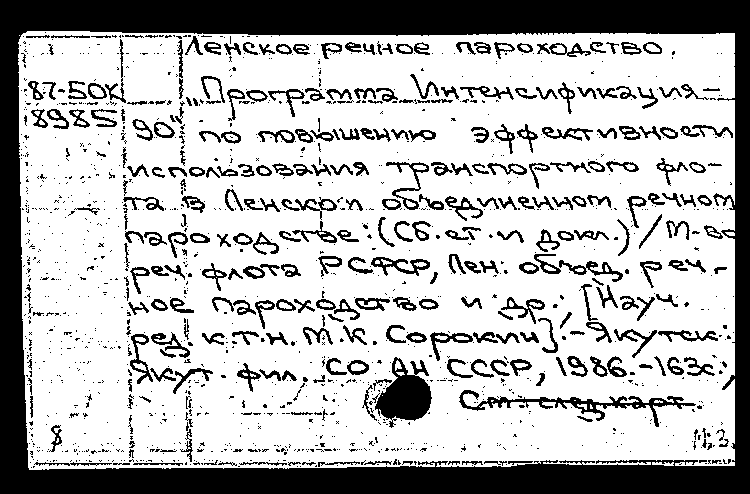 Ленское речное пароходство.
87-50К „Программа Интенсификация-
8985 90" по повышению эффективности
использования транспортного фло-
та в Ленском объединенном речном
пароходстве: (Сб. ст. и докл.) / М-во
реч. флота РСФСР, Лен. объед. реч-
ное пароходство и др.; [Науч.
ред. к.т.н. М.К. Сорокин]. - Якутск:
Якут. фил. СО АН СССР, 1986. - 163с.;
См. след. карт.
8